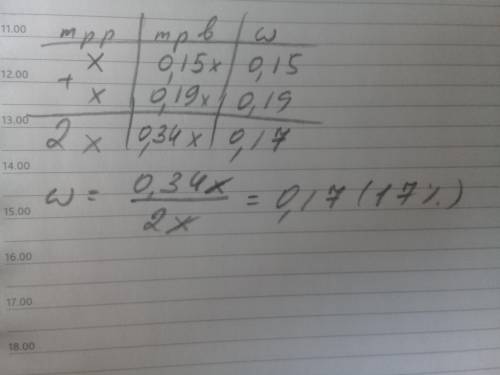 11.00
mpp mpв ω
x 0,15x 0,15
12.00
+
x 0,19x 0,19
13.00
2x 0,34x 0,17
14.00
ω = 0,34x / 2x = 0,17 (17%)
15.00
16.00
17.00
18.00